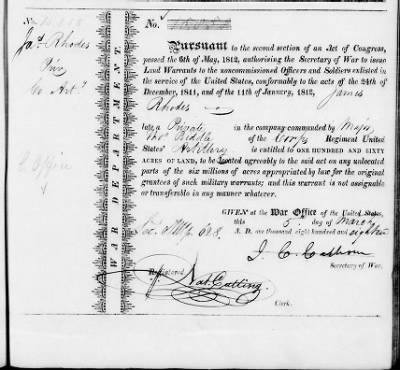 No.
No.
Jas. Rhodes
Priv
Pursuant to the second section of an Act of Congress,
passed the 6th of May, 1812, authorising the Secretary of War to issue
Land Warrants to the noncommissioned Officers and Soldiers enlisted in
the service of the United States, conformably to the acts of the 24th of
December, 1811, and of the 11th of January, 1812, James
Rhodes
late a Private in the company commanded by Major
Thos Biddle of the Corps Regiment United
States' Artillery is entitled to ONE HUNDRED AND SIXTY
ACRES OF LAND, to be located agreeably to the said act on any unlocated
parts of the six millions of acres appropriated by law for the original
grantees of such military warrants; and this warrant is not assignable
or transferable in any manner whatever.
WAR DEPARTMENT.
GIVEN at the War Office of the United States,
this 5 day of March
A. D. one thousand eight hundred and eighteen
J. C. Calhoun
Secretary of War.
Registered
Nat. Cutting
Clerk.